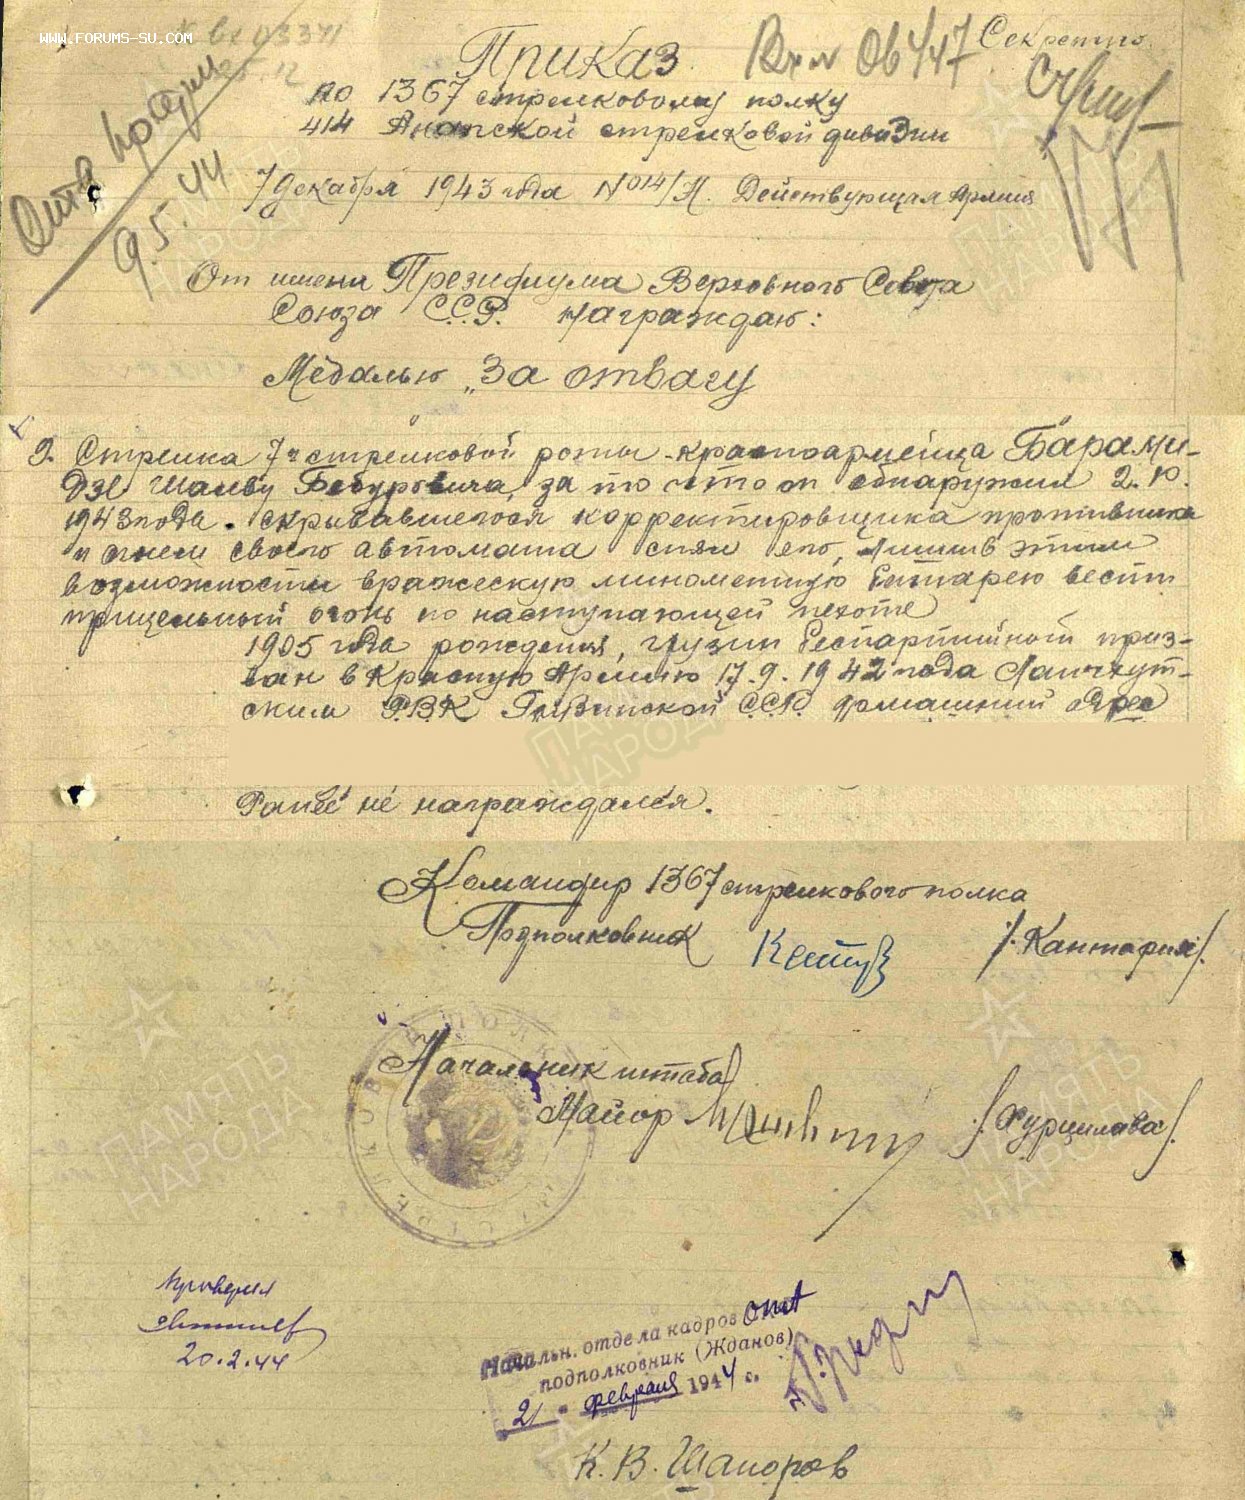 WWW.FORUMS-SU.COM
Секретно.
Приказ
Вх № 06447
по 1367 стрелковому полку
414 Анапской стрелковой дивизии
9.5.44
7 декабря 1943 года № 014/Н. Действующая Армия
От имени Президиума Верховного Совета
Союза С.С.Р. награждаю:
Медалью „За отвагу"
9. Стрелка 7й стрелковой роты - красноармейца Барами-
дзе Шалву Бебуровича, за то что он обнаружил 2.10.
1943 года. скрывавшегося корректировщика противника
и огнем своего автомата снял его, лишив этим
возможности вражескую минометную батарею вести
прицельный огонь по наступающей пехоте
1905 года рождения, грузин беспартийный приз-
ван в Красную Армию 17.9.1942 года Ланчхут-
ским Р.В.К Грузинской С.С.Р. домашний адрес
Ранее не награждался.
Командир 1367 стрелкового полка
Подполковник /. Кантария/.
Начальник штаба
Майор /. Хурцилава/.
Проверил
20.2.44
Начальн. отдела кадров ОПА
подполковник (Жданов)
21 " февраля 1944 г.
К. В. Шапоров
ПАМЯТЬ
НАРОДА